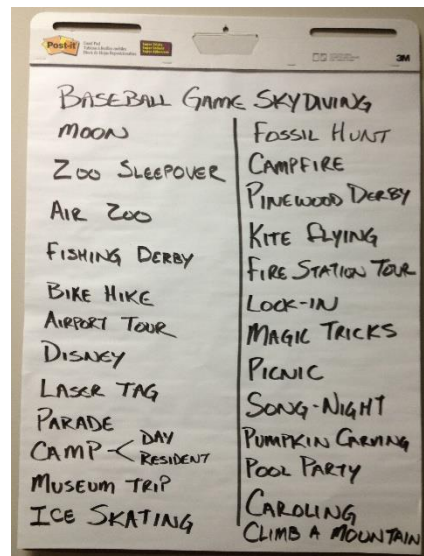 Post-it
3M
BASEBALL GAME SKYDIVING
MOON
ZOO SLEEPOVER
AIR ZOO
FISHING DERBY
BIKE HIKE
AIRPORT TOUR
DISNEY
LASER TAG
PARADE
CAMP < DAY
RESIDENT
MUSEUM TRIP
ICE SKATING
FOSSIL HUNT
CAMPFIRE
PINEWOOD DERBY
KITE FLYING
FIRE STATION TOUR
LOCK-IN
MAGIC TRICKS
PICNIC
SONG-NIGHT
PUMPKIN CARVING
POOL PARTY
CAROLING
CLIMB A MOUNTAIN